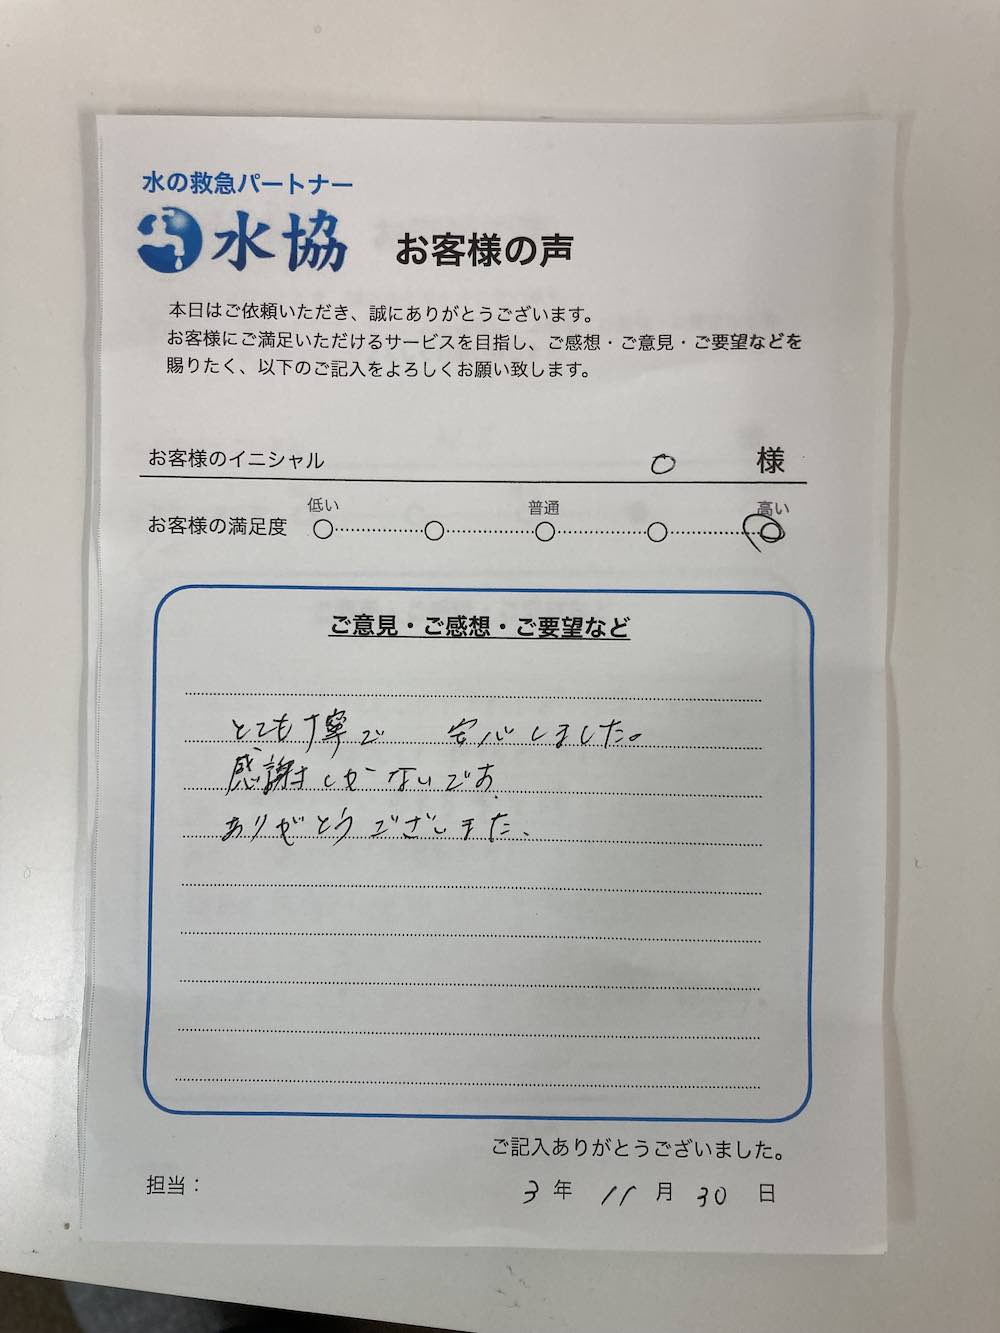 水の救急パートナー
水協
お客様の声
本日はご依頼いただき、誠にありがとうございます。
お客様にご満足いただけるサービスを目指し、ご感想・ご意見・ご要望などを
賜りたく、以下のご記入をよろしくお願い致します。
お客様のイニシャル O 様
低い 普通 高い
お客様の満足度
ご意見・ご感想・ご要望など
とても丁寧で 安心しました。
感謝しかないです。
ありがとうございました。
ご記入ありがとうございました。
担当：
3 年 11 月 30 日